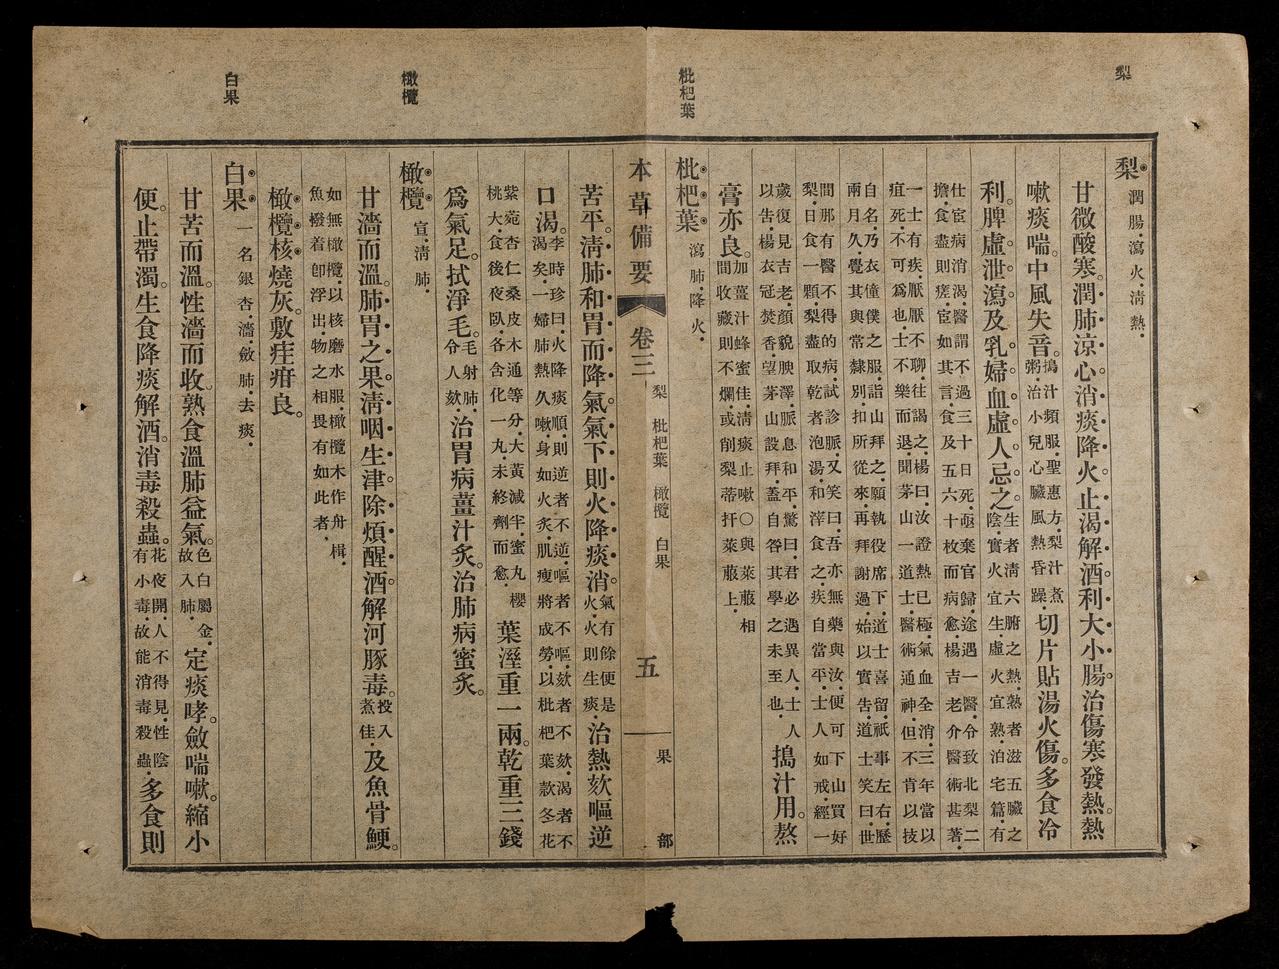 梨
枇杷葉
橄欖
白果
梨 潤腸.瀉火.清熱.
甘微酸寒.潤肺涼心.消痰降火.止渴解酒.利大小腸.治傷寒發熱.熱
嗽痰喘.中風失音.搗汁頻服.聖惠方.梨汁煮粥.治小兒心臟風熱昏躁.切片貼湯火傷.多食冷
利.脾虛泄瀉及乳婦血虛人忌之.生者清六腑之熱.熱者滋五臟之陰.實火宜生.虛火宜熟.泊宅篇.有
仕宦病消渴.醫謂不過三十日死.亟棄官歸.途遇一醫.令致北梨二擔.食盡則瘥.宦如其言.食及五六十枚而病愈.楊吉老介醫術甚著.
一士有疾.厭厭不聊.往謁之.楊曰.汝證熱已極.氣血全消.三年當以疽死.不可爲也.士不樂而退.聞茅山一道士.醫術通神.但不肯以技
自名.乃衣僮僕之服.詣山拜之.願執役席下.道士喜留.祇事左右.歷兩月久.覺其與常隸別.扣所從來.再拜謝過.始以實吿.道士笑曰.世
間那有醫不得的病.試診脈.又笑曰.吾亦無藥與汝.便可下山買好梨.日食一顆.梨盡取乾者泡湯.和滓食之.疾自當平.士人如戒經一
歲.復見吉老.顏貌腴澤.脈息和平.驚曰.君必遇異人.士人以吿.楊衣冠焚香.望茅山設拜.蓋自咎其學之未至也.搗汁用.熬
膏亦良.加薑汁蜂蜜佳.清痰止嗽〇與萊菔相間收藏則不爛.或削梨蒂扦萊菔上.
枇杷葉 瀉肺.降火.
本草備要 卷三 梨 枇杷葉 橄欖 白果 五 果部
苦平.淸肺和胃而降氣.氣下則火降痰消.氣有餘便是火.火則生痰.治熱欬嘔逆
口渴.李時珍曰.火降痰順.則逆者不逆.嘔者不嘔.欬者不欬.渴者不渴矣.一婦肺熱久嗽.身如火炙.肌瘦將成勞.以枇杷葉款冬花
紫菀杏仁桑皮木通等分.大黃減半.蜜丸櫻桃大.食後夜臥.各含化一丸.未終劑而愈.葉溼重一兩.乾重三錢
爲氣足.拭淨毛.毛射肺.令人欬.治胃病薑汁炙.治肺病蜜炙.
橄欖 宣.淸肺.
甘濇而溫.肺胃之果.淸咽生津.除煩醒酒.解河豚毒.投入煮佳.及魚骨鯁.
如無橄欖.以核磨水服.橄欖木作舟楫.魚撥着卽浮出.物之相畏有如此者.
橄欖核燒灰.敷疰疳良.
白果 一名銀杏.濇.斂肺.去痰.
甘苦而溫.性濇而收.熟食溫肺益氣.色白屬金.故入肺.定痰哮.斂喘嗽.縮小
便.止帶濁.生食降痰解酒.消毒殺蟲.花夜開.人不得見.性陰有小毒.故能消毒殺蟲.多食則